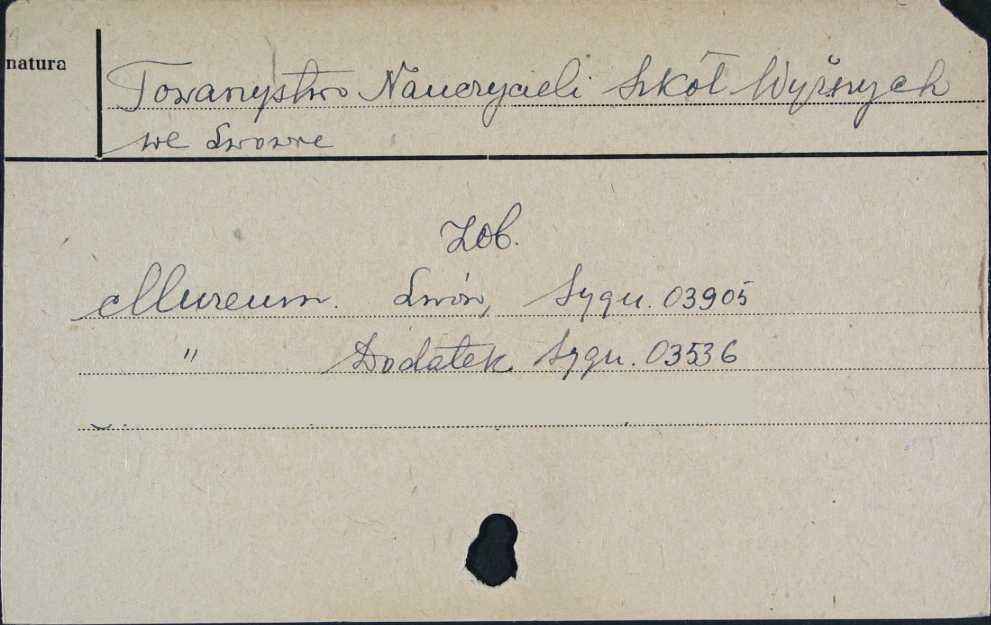 natura
Towarzystwo Nauczycieli Szkół Wyższych
we Lwowie
Zob.
Muzeum. Lwów, Sygn. 03905
" Dodatek Sygn. 03536